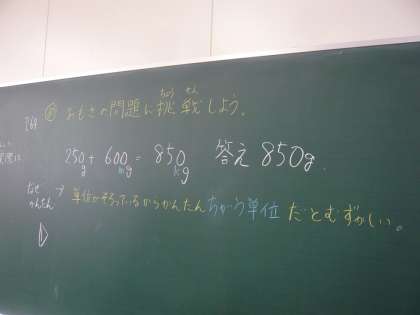 ちょう せん
め おもさの問題に挑戦しよう。
250g + 600g = 850g 答え 850g.
なぜかんたん → 単位がそろっているからかんたん ちがう単位だとむずかしい。